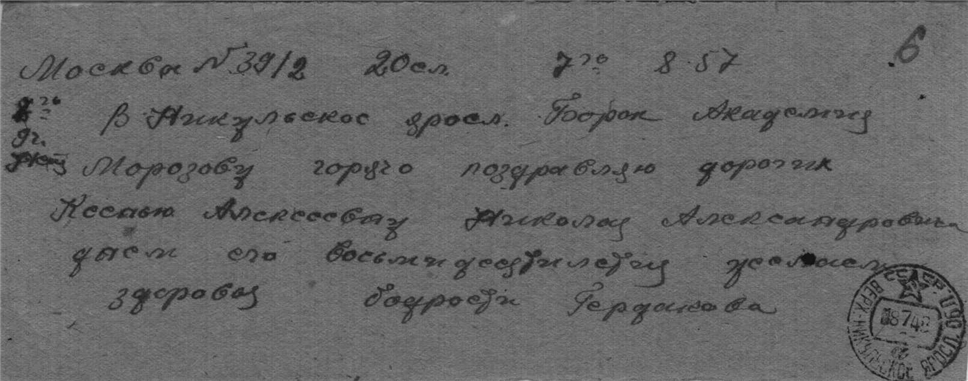 6
Москвы N 39/2 20 сл. 7го 8-57
7го
9ч.
В Никульское яросл. Борок Академия
Морозову горячо поздравляю дорогих
Ксенью Алексеевну Николая Александровича
днем его восьмидесятилетия желаем
здоровья бодрости Гердакова
СССР
ВЕРХ-НИКУЛЬСКОЕ ЯРОСЛ. ОБЛ.
8 7 4